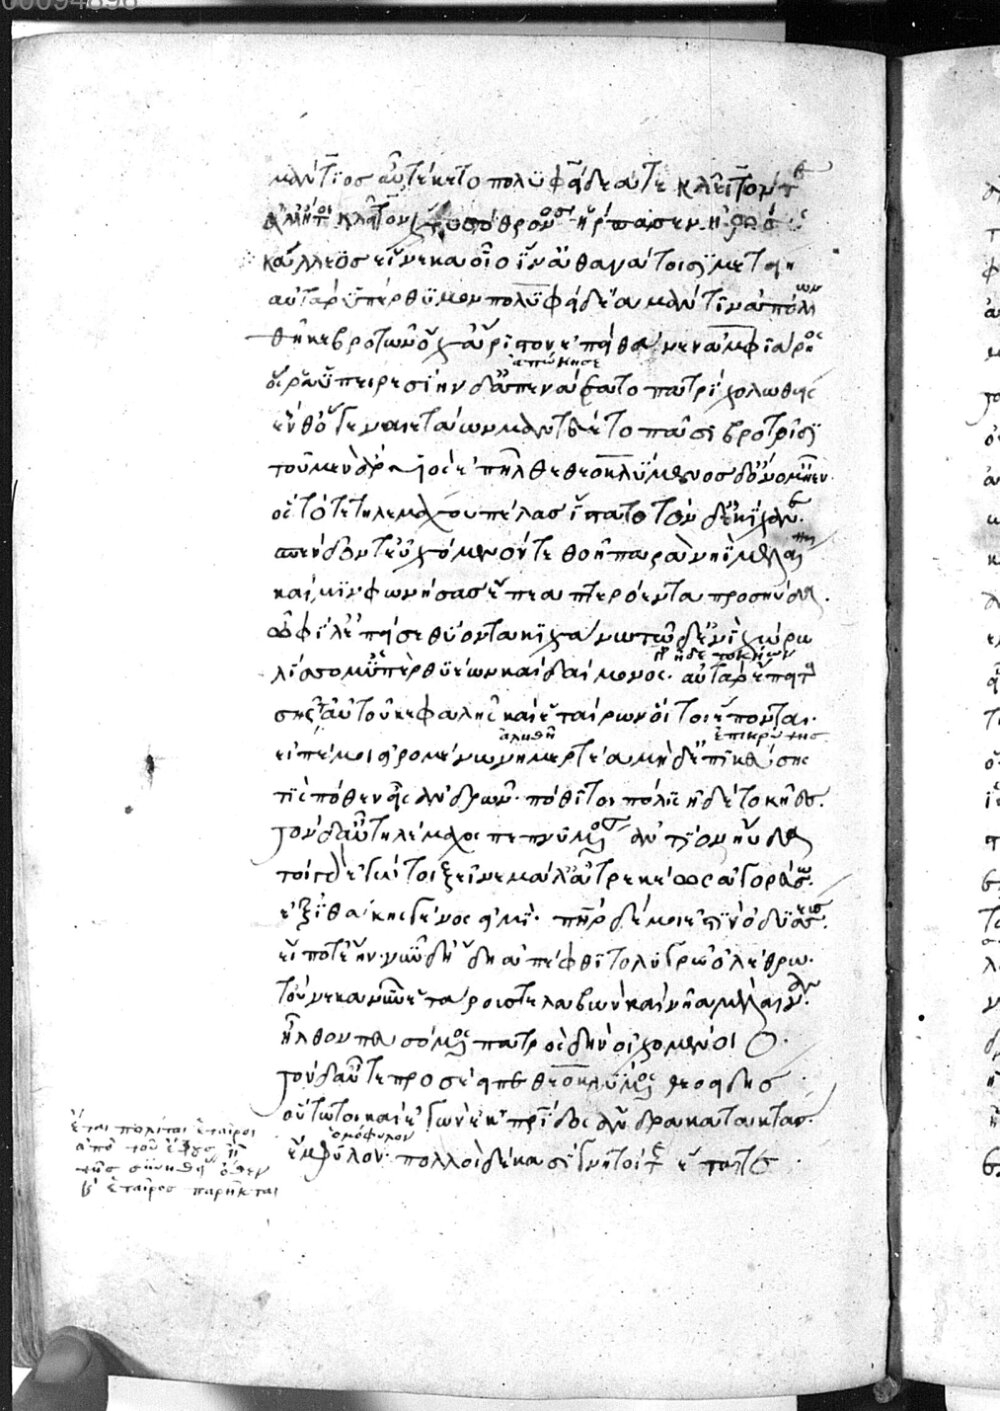 00094898
μάντιος αὖ τέκετο πολυφείδεά τε κλεῖτόν τε
ἀλλ' ἤτοι κλεῖτον χρυσόθρονος ἥρπασεν ἠὼς
κάλλεος εἵνεκα οἷο ἵν' ἀθανάτοισι μετείη
αὐτὰρ ὑπέρθυμον πολυφείδεα μάντιν ἀπόλλων
θῆκε βροτῶν ὄχ' ἄριστον ἐπεὶ θάνεν ἀμφιάρηος
ἀπῴκησε
ὅς ῥ' ὑπερησίην δ' ἀπενάσσατο πατρὶ χολωθείς
ἔνθ' ὅγε ναιετάων μαντεύετο πᾶσι βροτοῖσι
τοῦ μὲν ἄρ' υἱὸς ἐπῆλθε θεοκλύμενος δ' ὄνομ' ἦεν.
ὃς τότε τηλεμάχου πέλας ἵστατο τὸν δ' ἐκίχανε.
σπένδοντ' εὐχόμενόν τε θοῇ παρὰ νηῒ μελαίνῃ
καί μιν φωνήσας ἔπεα πτερόεντα προσηύδα.
ὦ φίλ' ἐπεί σε θύοντα κιχάνω τῷδ' ἐνὶ χώρῳ
λίσσομ' ὑπὲρ θυέων καὶ δαίμονος. αὐτὰρ ἔπειτα
σῆς τ' αὐτοῦ κεφαλῆς καὶ ἑταίρων οἵ τοι ἕπονται.
ἀληθῆ ἐπικρύψῃς
εἰπέ μοι εἰρομένῳ νημερτέα μηδ' ἐπικεύσῃς
τίς πόθεν εἶς ἀνδρῶν. πόθι τοι πόλις ἠδὲ τοκῆες.
τὸν δ' αὖ τηλέμαχος πεπνυμένος ἀντίον ηὔδα
τοιγὰρ ἐγώ τοι ξεῖνε μάλ' ἀτρεκέως ἀγορεύσω.
ἐξ ἰθάκης γένος εἰμί. πατὴρ δέ μοι ἐστὶν ὀδυσσεύς.
εἴ ποτ' ἔην. νῦν δ' ἤδη ἀπέφθιτο λυγρῷ ὀλέθρῳ.
τοὔνεκα νῦν ἑτάρους τε λαβὼν καὶ νῆα μέλαιναν.
ἦλθον πευσόμενος πατρὸς δὴν οἰχομένοιο.
τὸν δ' αὖτε προσέειπε θεοκλύμενος θεοειδής
οὕτω τοι καὶ ἐγὼν ἐκ πατρίδος ἄνδρα κατακτάς.
ὁμόφυλον
ἔμφυλον. πολλοὶ δὲ κασίγνητοί τε ἔται τε
ἔται πολῖται ἑταῖροι
ἀπὸ τοῦ ἔθους
τῆς συνηθείας ὅθεν
καὶ ἑταῖρος παρῆκται